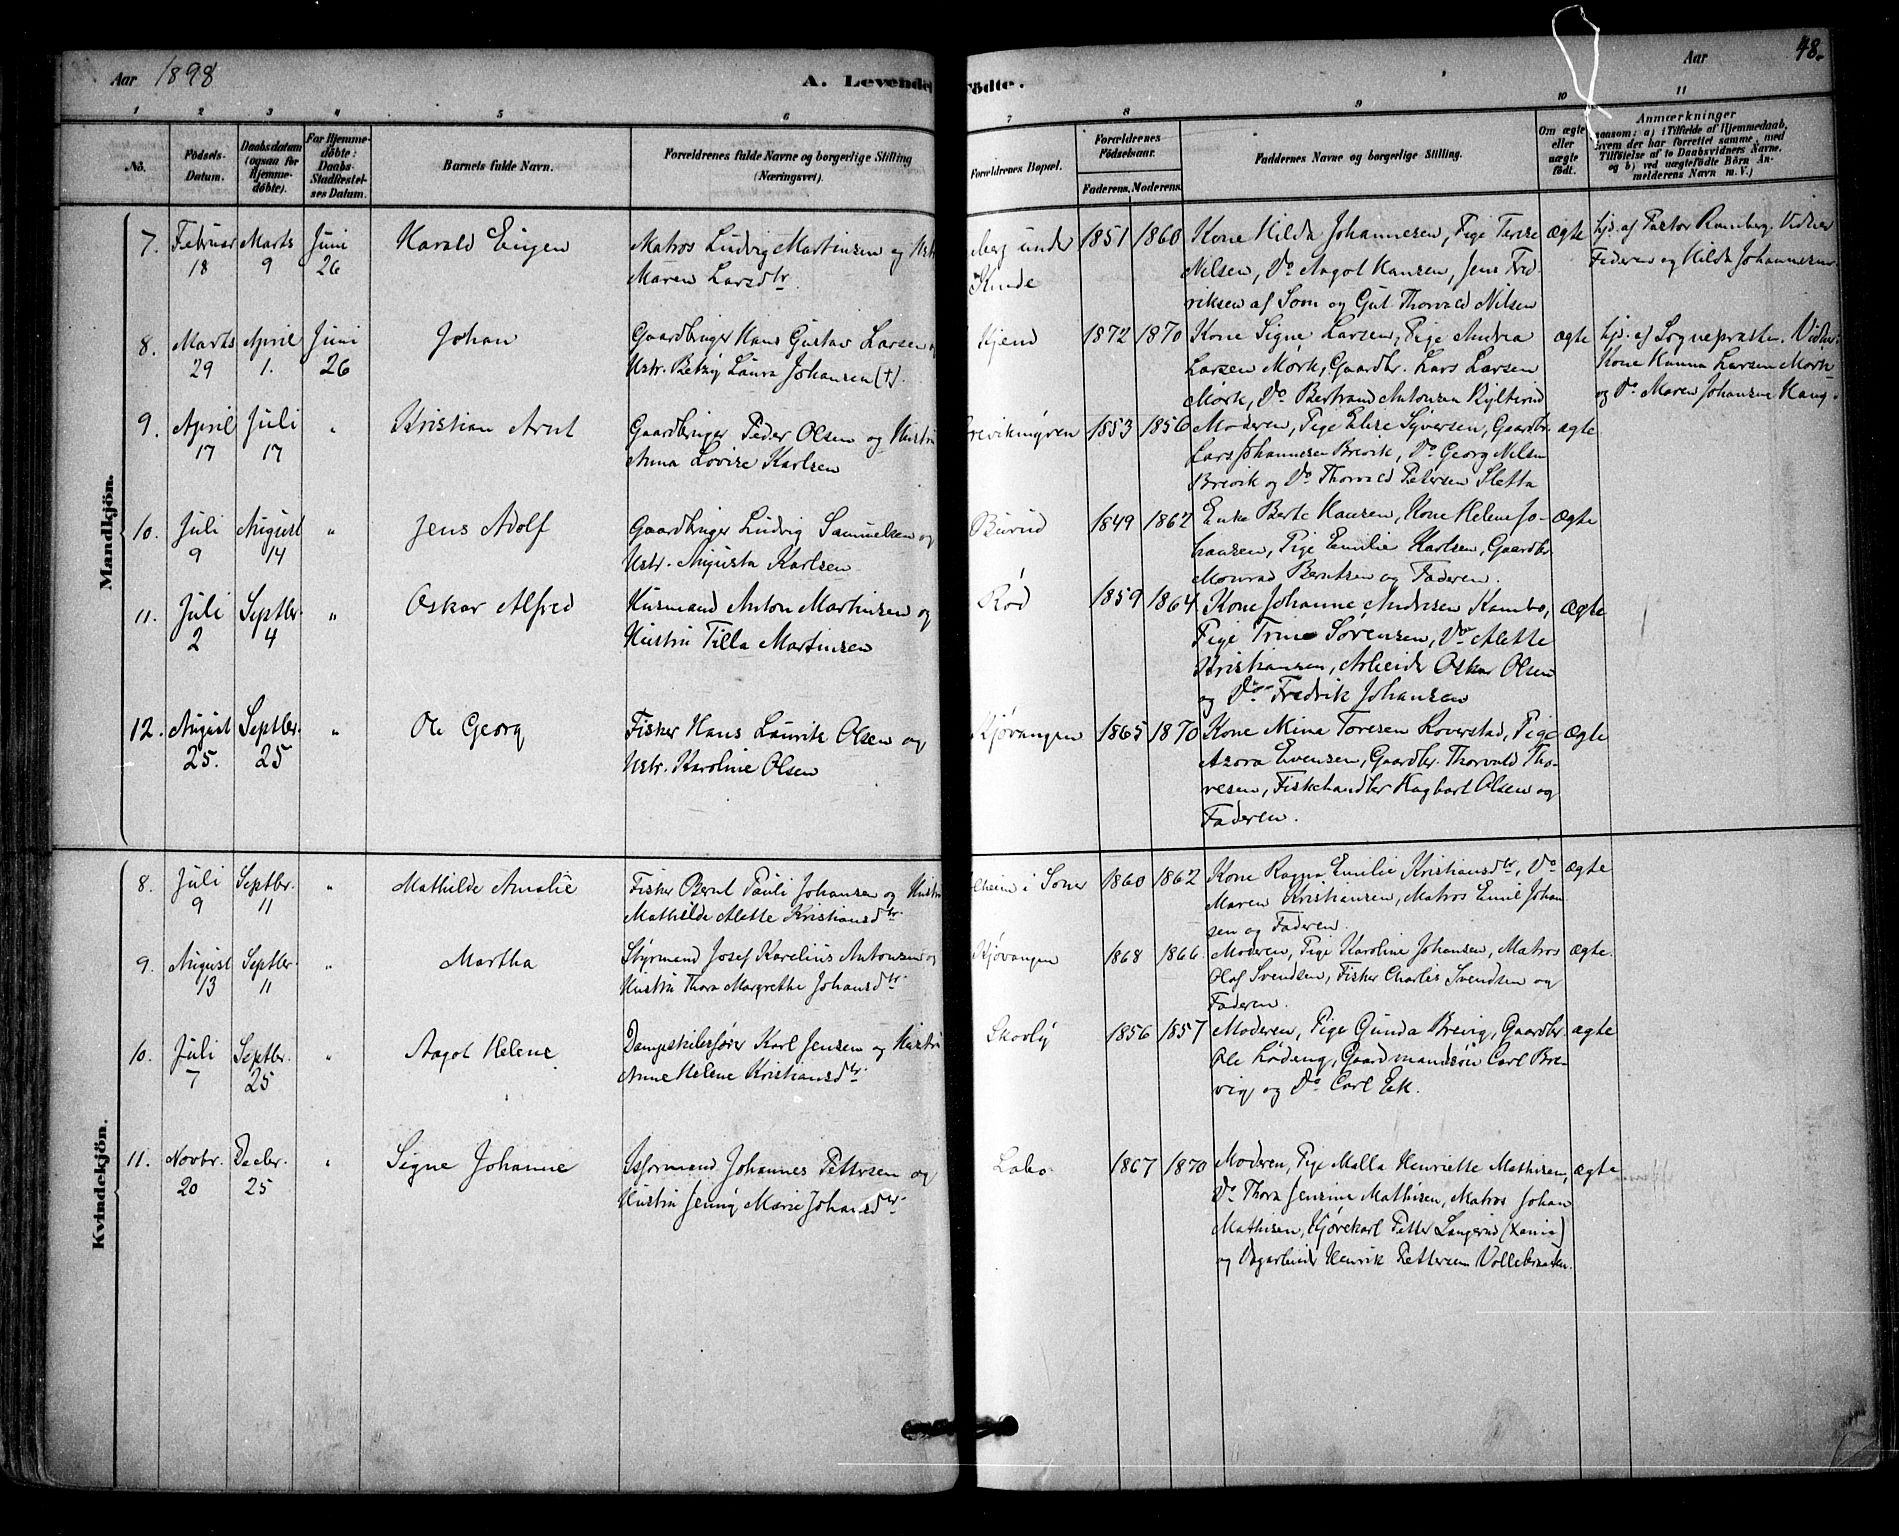 Aar 1898
A. Levende
födte.
Aar
48.
1 2 3 4 5 6 7 8 9 10 11
No.
Födsels-
Datum.
Daabsdatum
(ogsaa for
Hjemme-
döbte).
For Hjemme-
döbte:
Daabs-
Stadfæstel-
ses Datum.
Barnets fulde Navn.
Forældrenes fulde Navne og borgerlige Stilling
(Næringsvei).
Forældrenes Bopæl.
Forældrenes
Födselsaar.
Faderens. Moderens.
Faddernes Navne og borgerlige Stilling.
Om ægte
eller
uægte
födt.
Anmærkninger
saasom: a) i Tilfælde af Hjemmedaab,
hvem der har forrettet samme, med
Tilföielse af to Daabsvidners Navne,
og b) ved uægtefödte Börn An-
melderens Navn m. V.)
Mandkjön.
7. Februar 18 Marts 9 Juni 26 Harald Eugen
Matros Ludvig Martinsen og Hstr.
Maren Larsdtr.
under
1851 1860
Kone Hilda Johannesen, Pige Terese
Nilsen, Do Aagot Hansen, Jens Fred-
riksen af Soon og Gut Thorvald Nilsen
ægte
hjd. af Pastor Ramberg. Vidner
Faderen og Hilda Johannesen.
8. Marts 29 April 1. Juni 26 Johan
Gaardbruger Hans Gustav Larsen o
Hstr. Betzy Laura Johansen (†).
1872 1870
Kone Signe Larsen, Pige Andrea
Larsen Mørk, Gaardbr. Lars Larsen
Mørk, Do Bertrand Antonsen
ægte
hjd. af Sognepræsten. Vidner:
Kone Hanna Larsen Mørk
og Do Maren Johansen Haug.
9. April 17 Juli 17 " Kristian Arnt
Gaardbruger Peder Olsen og Hustru
Anna Lovise Karlsen
1853 1856
Moderen, Pige Elise Syversen, Gaardbr.
Lars Johannesen Brevik, Do Georg Nilsen
Brevik og Do Thorvald Petersen Sletta
ægte
10. Juli 9 August 14 " Jens Adolf
Gaardbruger Ludvig Samuelsen og
Hstr. Augusta Karlsen
Burud
1849 1862
Enke Berte Hansen, Kone Helene Jo-
hansen, Pige Emilie Karlsen, Gaardbr.
Monrad Berntsen og Faderen.
ægte
11. Juli 2 Septbr. 4 " Oskar Alfred
Husmand Anton Martinsen og
Hustru Tilla Martinsen
Rød
1859 1864
Kone Johanne Andresen Kambo,
Pige Trine Sørensen, Do Alette
Kristiansen, Arbeider Oskar Olsen
og Do Fredrik Johansen
ægte
12. August 25. Septbr. 25 " Ole Georg
Fisker Hans Laurits Olsen og
Hstr. Karoline Olsen
Kjøvangen
1865 1870
Kone Mina Toresen Roverstad, Pige
Azora Evensen, Gaardbr. Thorvald Tho-
resen, Fiskehandler Hagbart Olsen og
Faderen.
ægte
Kvindekjön.
8. Juli 9 Septbr. 11 " Mathilde Amalie
Fisker Bernt Pauli Johansen og Hustru
Mathilde Alette Kristiansdtr.
heim i Soner
1860 1862
Kone Ragna Emilie Kristiansdtr, Do
Maren Kristiansen, Matros Emil Johan
sen og Faderen.
ægte
9. August 13 Septbr. 11 " Martha
Styrmand Josef Karelius Antonsen og
Hustru Thora Margrethe Johansdtr.
Kjøvangen
1868 1866
Moderen, Pige Karoline Johansen, Matros
Olaf Svendsen, Fisker Charles Svendsen og
Faderen.
ægte.
10. Juli 7 Septbr. 25 " Aagot Helene
Dampskibsfører Karl Jensen og Hustru
Anne Helene Kristiansdtr.
Skovly
1856 1857
Moderen, Pige Gunda Brevig, Gaardbr.
Ole Løding, Gaardmandssøn Carl Bre-
vig og Do Carl Eek.
ægte
11. Novbr. 20 Decbr. 25 " Signe Johanne
Isformand Johannes Pettersen og
Hustru Jenny Marie Johansdtr.
Labo
1867 1870
Moderen, Pige Malla Henriette Mathisen,
Do Thora Jensine Mathisen, Matros Johan
Mathisen, Kjørekarl Petter Langerud (Xania)
og Dagarbeider Henrik Pettersen
ægte